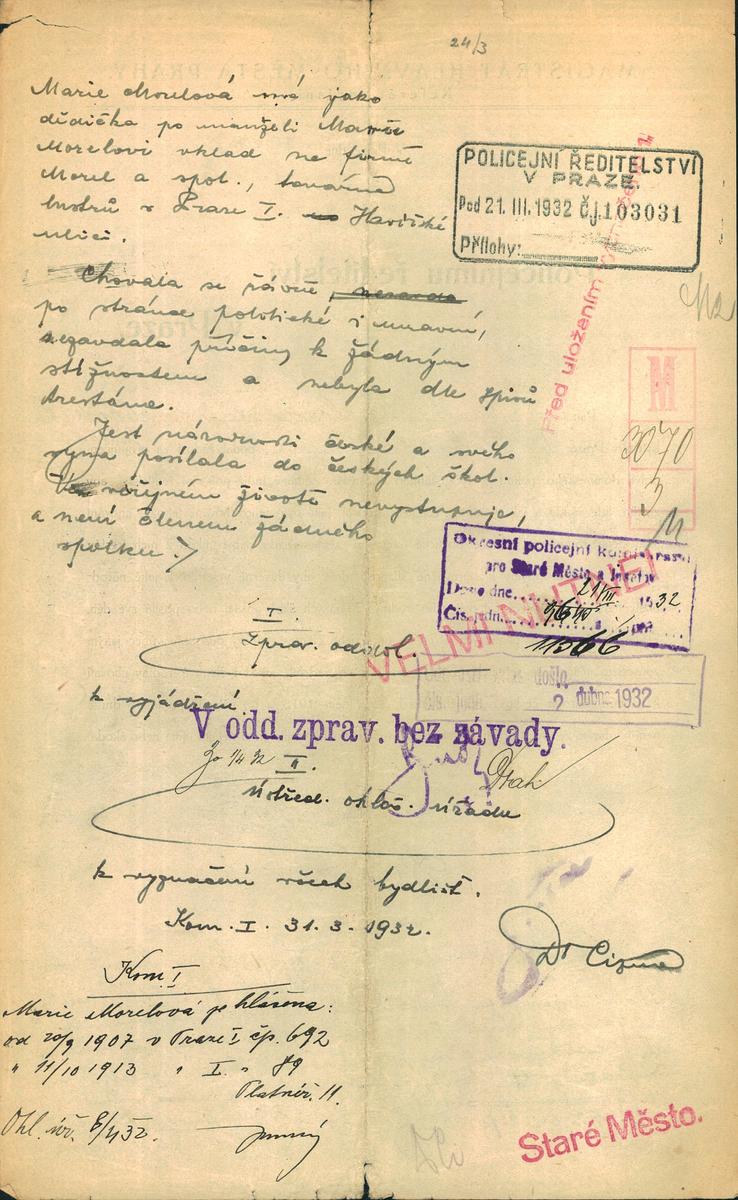 24/3
Marie Morelová má jako
dědička po manželi
Morelovi vklad ve firmě
Morel a spol., továrna
lustrů v Praze I. Havířské
ulici.
POLICEJNÍ ŘEDITELSTVÍ
V PRAZE
Pod 21. III. 1932 Čj. 103031
Přílohy:
Před uložením
Chovala se řádně
po stránce politické i mravní,
nezavdala příčiny k žádným
stížnostem a nebyla dle spisů
trestána.
Jest národnosti české a svého
syna posílala do českých škol.
Ve veřejném životě nevystupuje,
a není členem žádného
spolku.
M
3070
3
11
Okresní policejní
pro Staré Město a Josefov
Došlo dne 21/III 1932
Čís. jedn.
11366
VELMI NUTNÉ!
došlo
2 dubna 1932
I.
Zprav. odděl.
k vyjádření
V odd. zprav. bez závady.
II.
Ústřed. ohlaš. úřadu
k vyznačení všech bydlišť.
Kom. I. 31. 3. 1932.
Dr
Kom I
Marie Morelová je hlášena:
od 20/9 1907 v Praze I čp. 692
" 11/10 1913 " I. " 89
Platnéř. 11.
Ohl. úř. 32.
Staré Město.